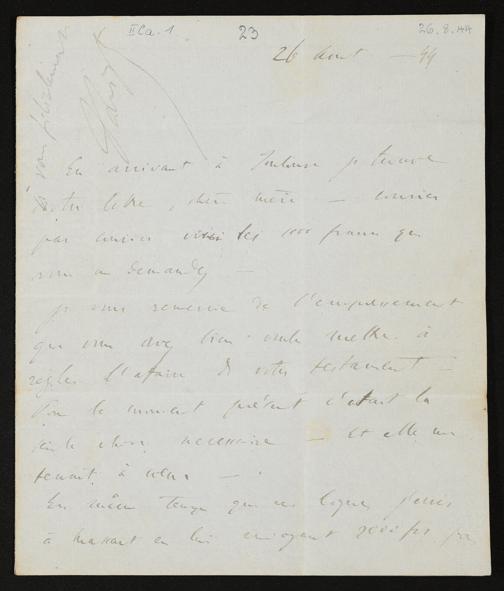 II Ca. 1
23
26.8.44
26 Aout — 44
à vous fidèlement
En arrivant à Toulouse je trouve
votre lettre, chère mère — courrier
par courrier voici les 1000 francs que
vous me demandez —
je vous remercie de l'empressement
que vous avez bien voulu mettre à
régler l'afaire de votre testament —
Pour le moment présent c'etait la
seule chose necessaire — et elle me
tenait à cœur —
En même temps que ces lignes j'ecris
à Massart en lui envoyant